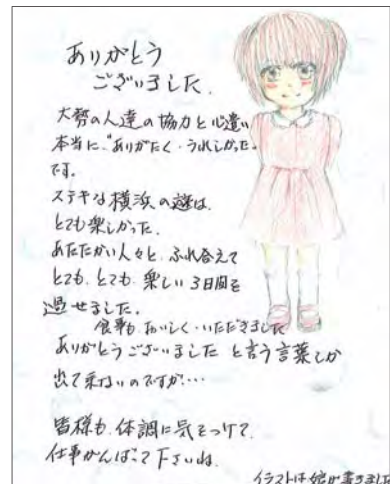 ありがとう
ございました。
大勢の人達の協力と心遣い
本当に“ありがたく・うれしかった。
です。
ステキな横浜の遊は、
とても楽しかった。
あたたかい人々と、ふれ合えて
とても、とても、楽しい3日間を
過せました。
食事も、おいしく・いただきました
ありがとうございました と言う言葉しか
出て来ないのですが‥‥
皆様も、体調に気をつけて、
仕事がんばって下さいね。
イラストは娘が書きました